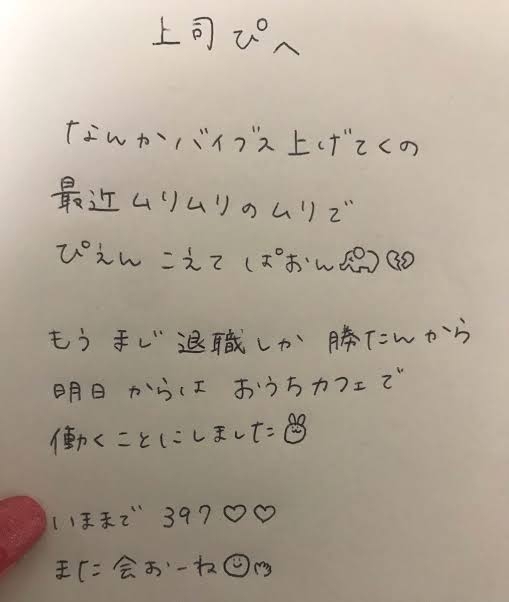 上司ぴへ
なんかバイブス上げてくの
最近ムリムリのムリで
ぴえんこえてぱおん🐘💔
もうまじ退職しか勝たんから
明日からはおうちカフェで
働くことにしました🐰
いままで397♡♡
また会おーね☺